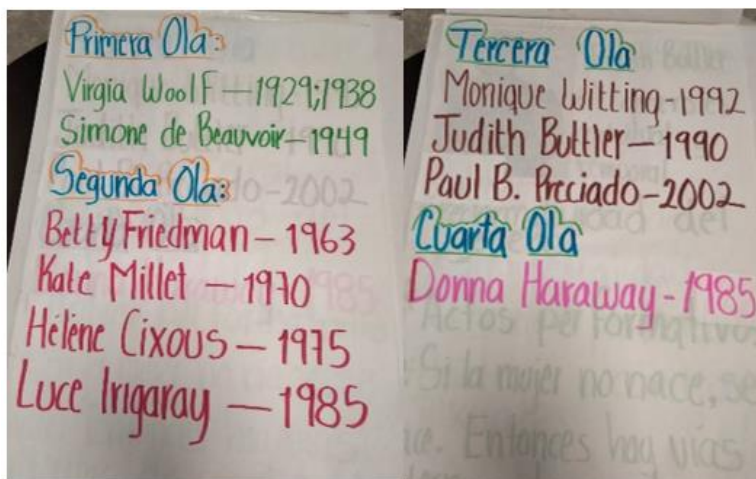 Primera Ola:
Virgia Woolf — 1929;1938
Simone de Beauvoir — 1949
Segunda Ola:
Betty Friedman — 1963
Kate Millet — 1970
Hélène Cixous — 1975
Luce Irigaray — 1985
Tercera Ola
Monique Witting - 1992
Judith Buttler — 1990
Paul B. Preciado - 2002
Cuarta Ola
Donna Haraway - 1985
Actos performativos
Si la mujer no nace, se
Entonces hay vías